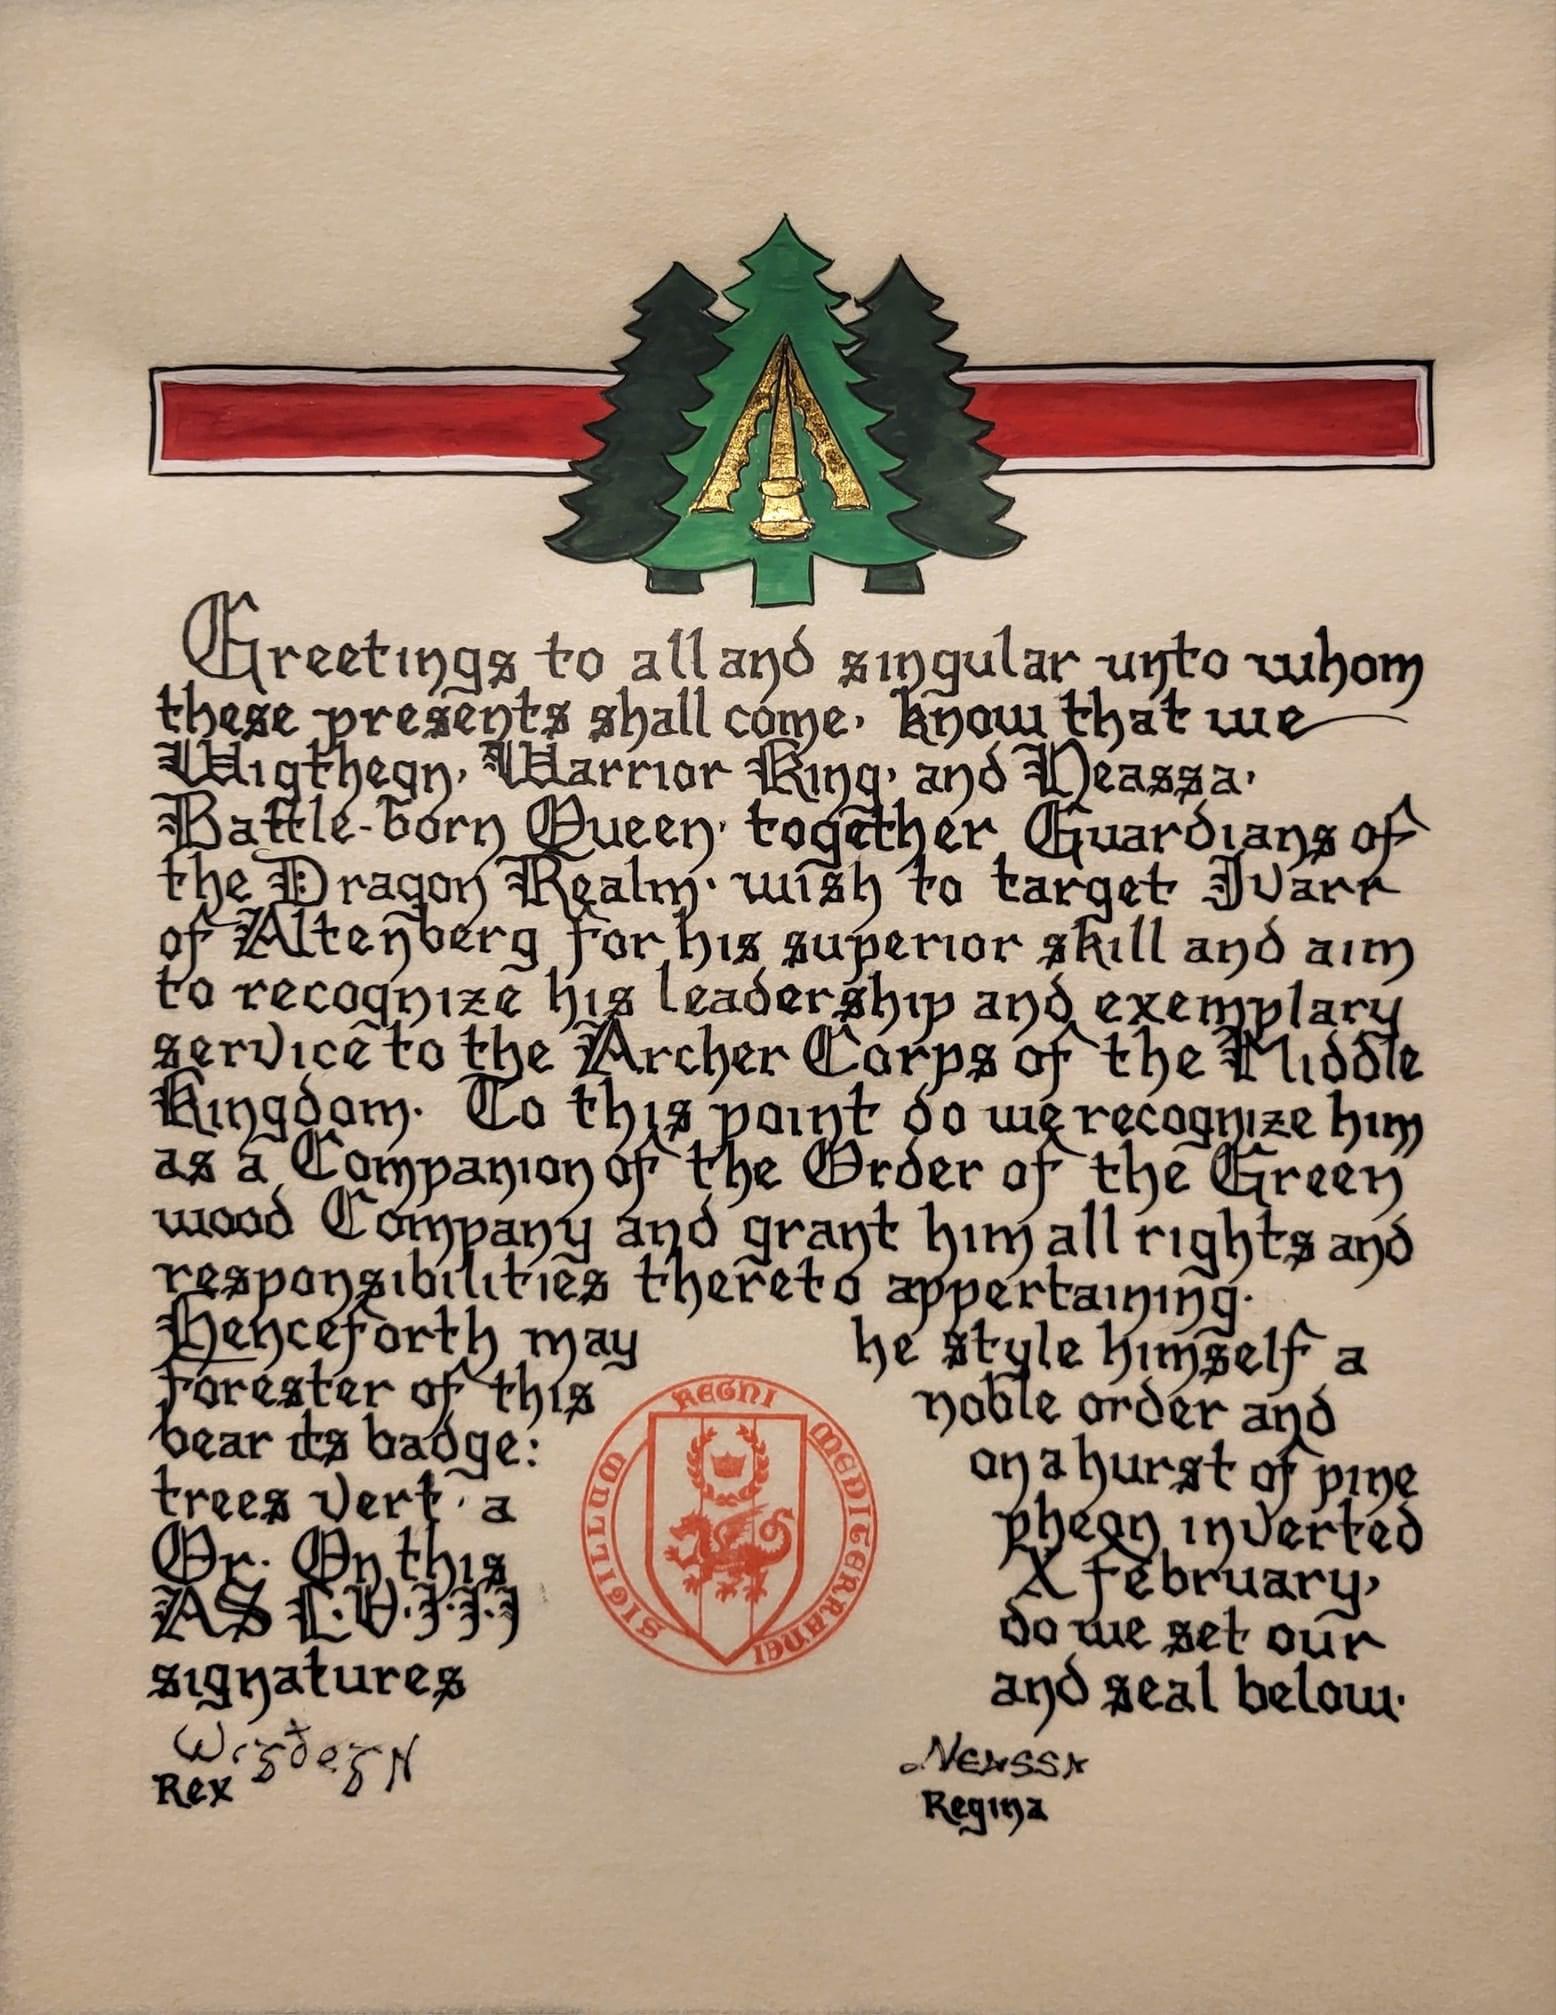 Greetings to all and singular unto whom
these presents shall come, know that we
Wigthegn, Warrior King, and Neassa,
Battle-born Queen, together Guardians of
the Dragon Realm, wish to target Ivarr
of Altenberg for his superior skill and aim
to recognize his leadership and exemplary
service to the Archer Corps of the Middle
Kingdom. To this point do we recognize him
as a Companion of the Order of the Green"
wood Company and grant him all rights and
responsibilities thereto appertaining.
Henceforth may he style himself a
forester of this noble order and
bear its badge: on a hurst of pine
trees vert, a pheon inverted
Or. On this X February,
AS L.V.I.I.I do we set our
signatures and seal below.
SIGILLUM REGNI MEDITERRANEI
Wigðegn Neassa
Rex Regina